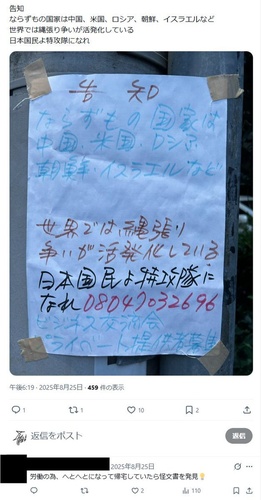 告知
ならずもの国家は中国、米国、ロシア、朝鮮、イスラエルなど
世界では縄張り争いが活発化している
日本国民よ特攻隊になれ
告 知
ならずもの国家は
中国、米国、ロシア、
朝鮮、イスラエルなど
世界では、縄張り
争いが活発化している
日本国民よ特攻隊に
なれ 08047032696
ビジネス交流会
プライベート提供者募集
午後6:19 · 2025年8月25日 · 459 件の表示
1 1 10 2
返信をポスト
返信
2025年8月25日
労働の為、へとへとになって帰宅していたら怪文書を発見
1 1 2 110